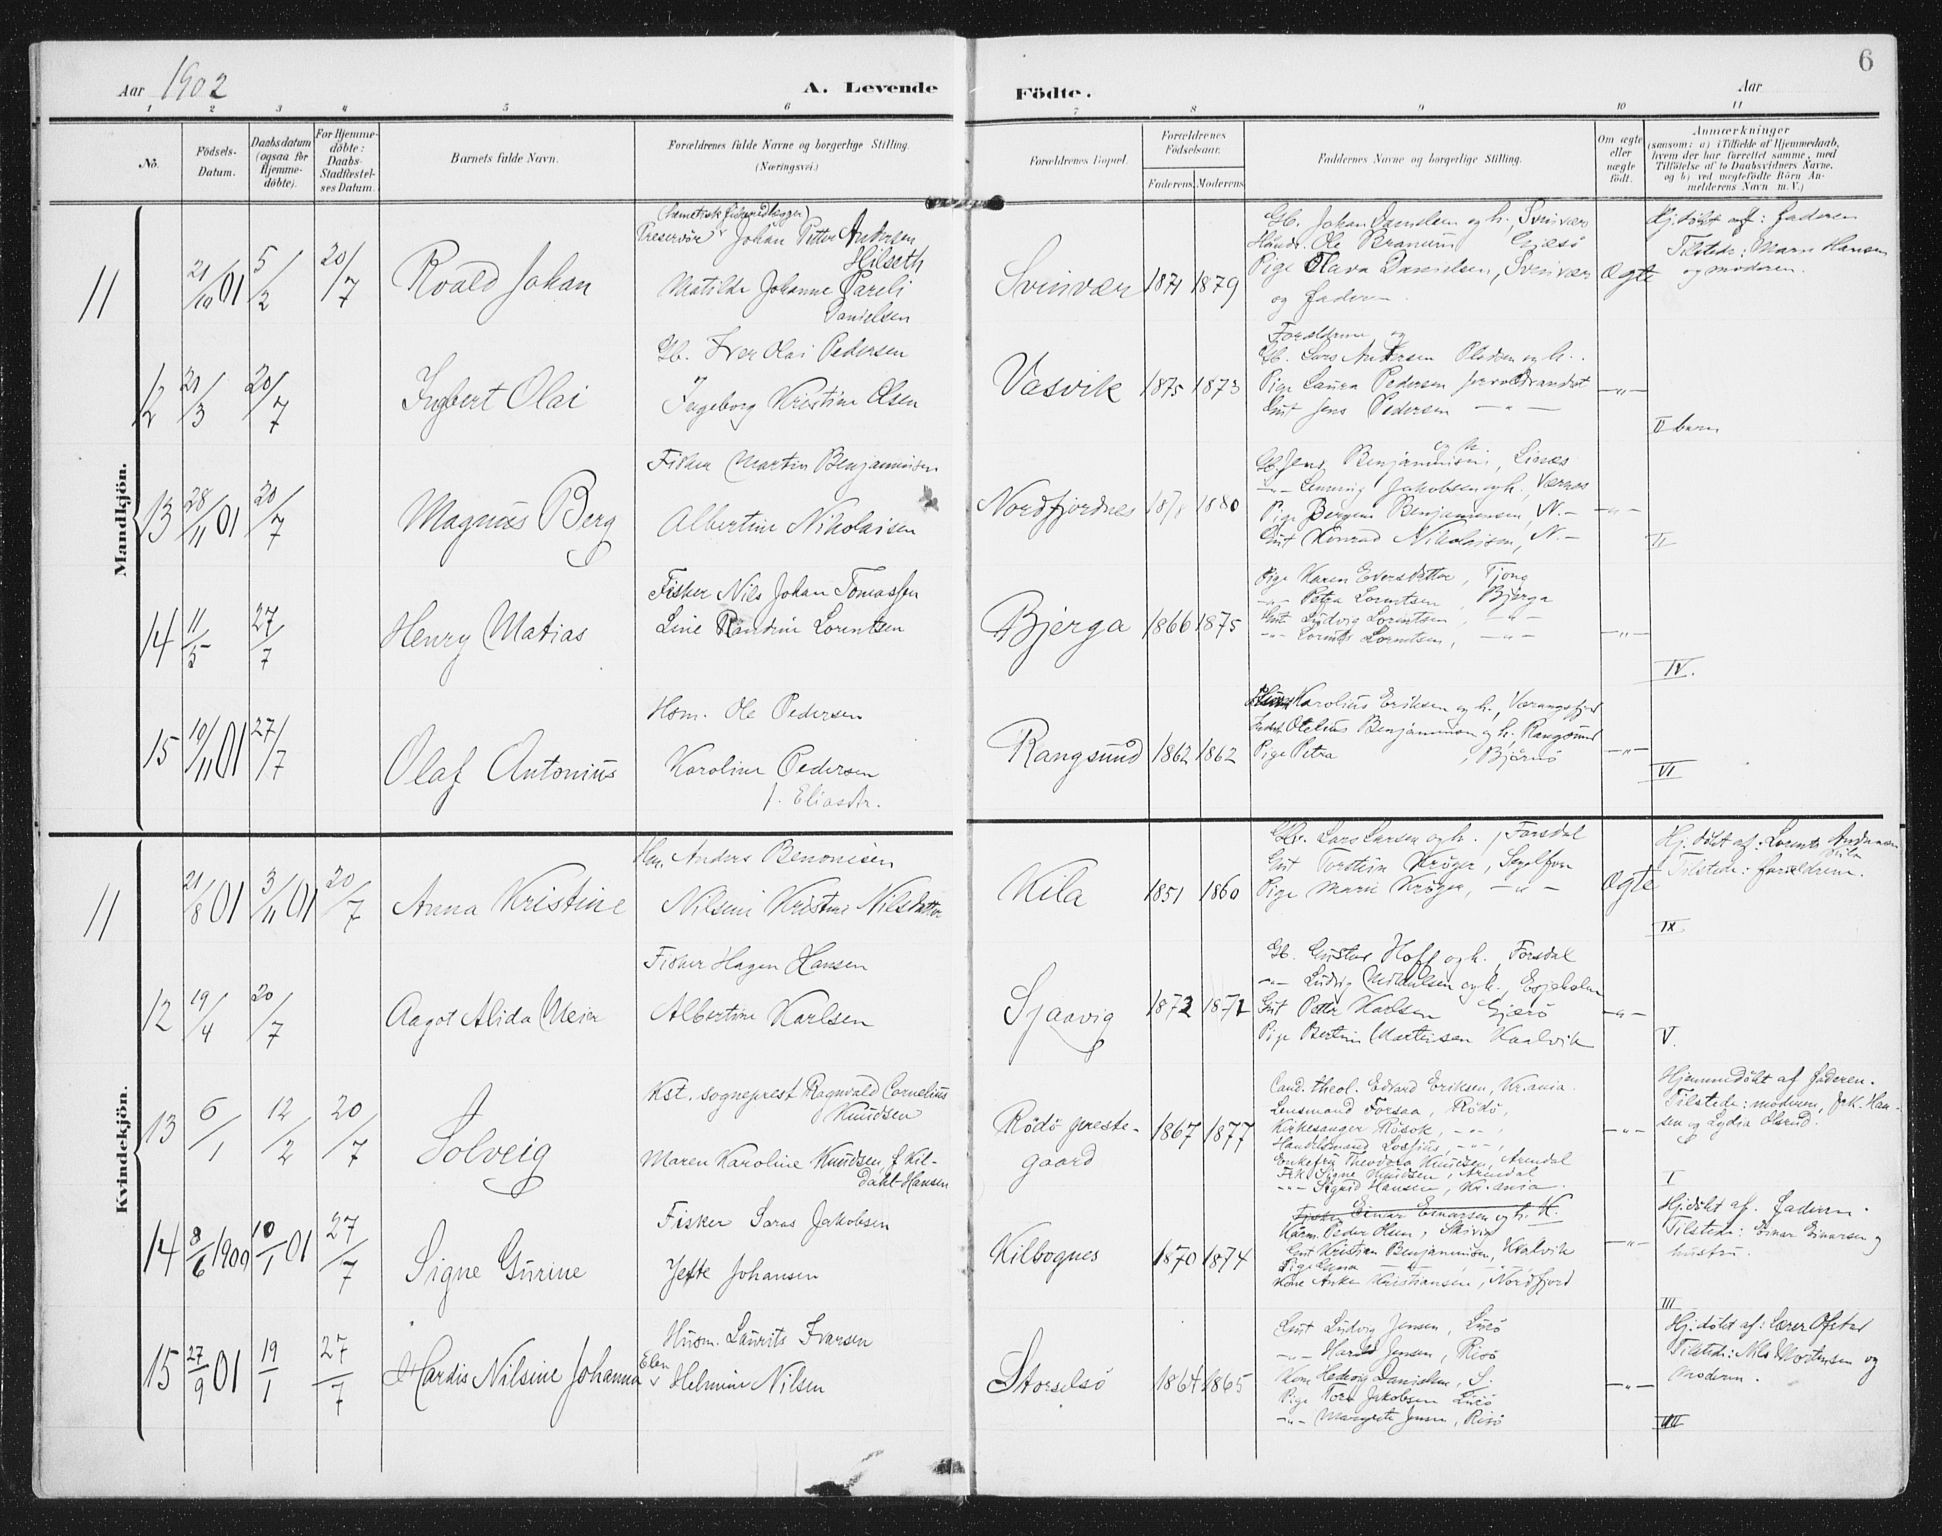 6
Aar 1902
A. Levende
Födte.
Aar
1 2 3 4 5 6 7 8 9 10 11
No.
Födsels-Datum.
Daabsdatum (ogsaa for Hjemme-döbte).
For Hjemme-döbte: Daabs-Stadfæstel-ses Datum.
Barnets fulde Navn.
Forældrenes fulde Navne og borgerlige Stilling.
(Næringsvei.)
Forældrenes Bopæl.
Forældrenes Födselsaar.
Faderens Moderens
Faddernes Navne og borgerlige Stilling.
Om ægte eller uægte födt.
Anmærkninger
(saasom: a) i Tilfælde af Hjemmedaab, hvem der har forrettet samme, med Tilföielse af to Daabsvidners Navne, og b) ved uægtefödte Börn An-melderens Navn m. V.)
Mandkjön.
11 21/10 01 5/2 20/7 Roald Johan
(hermetisk fiskenedlægger)
Preservör Johan Petter Andersen
Hilseth
Matilde Johanne Pareli
Danielsen
Svinvær 1871 1879
Gb. Johan Danielsen og h., Svinvær
Handr. Ole Branum Gjesö
Pige Olava Danielsen, Svinvær
og Faderen.
Ægte
Hj.döbt af: Faderen
Tilstede: Marie Hansen
og moderen.
12 21/3 20/7 Ingbert Olai
Gb. Iver Olai Pedersen
Ingeborg Kristine Olsen
Vasvik 1875 1873
Forældrene og
Gb. Lars Andersen og h.
Pige Laura Pedersen
Gut Jens Pedersen — " —
— " —
II barn
13 28/11 01 20/7 Magnus Berg
Fisker Martin Benjaminsen
Albertine Nikolaisen
Nordfjordnes 1880
Gb. Jens Benjaminsen og h., Linæs
— " — Jakobsen og h., Værnes
Pige Bergine Benjaminsen, N.—
Gut Konrad Nikolaisen, N.—
— " —
II
14 11/5 27/7 Henry Matias
Fisker Nils Johan Tomassen
Line Randine Lorentsen
Bjerga 1866 1875
Pige Karen Evensdatter, Tjong
— " — Petra Lorentsen, Bjerga
Gut Ludvig Lorentsen, — " —
— " — Lorents Lorentsen, — " —
— " —
IV.
15 10/11 01 27/7 Olaf Antonius
Hsm. Ole Pedersen
Karoline Pedersen
f. Eliasdr.
Rangsund 1862 1862
Karolius Eriksen og h., Værangfjord
Otelius Benjaminsen og h. Rangsund
Pige Petra, Bjærnö
— " —
VI
Kvindekjön.
11 21/8 01 3/11 01 20/7 Anna Kristine
Hsm. Anders Benonisen
Nilsine Kristine Nilsdatter
Kila 1851 1860
Gbr. Lars Larsen og h., Forsdal
Gut Torstein Kröger, Segelfor
Pige Marie Kröger, — " —
Ægte
Hj. döbt af: Lorents Andersen
Kila
Tilstede: forældrene.
IX
12 19/4 20/7 Aagot Alida Meier
Fisker Hagen Hansen
Albertine Karlsen
Sjaavig 1872 1871
Gb. Gustav Hoff og h., Forsdal
— " — Ludvig Mikalsen og h., Esjeholm
Gut Petter Karlsen Gjerö
Pige Bertine Martinsen Kaalvik
— " —
V.
13 6/1 12/2 20/7 Solveig
Kst. sogneprest Ragnvald Cornelius
Knudsen
Maren Karoline Knudsen, f. Kil-
dahl Hansen
Rödö preste-
gaard 1867 1877
Cand. theol. Edvard Eriksen, Kr.ania.
Lensmand Forsaa, Rödö,
Kirkesanger Rösok, — " —
Handelsmand Losjius, — " —
Enkefru Theodora Knudsen, Arendal
Frk. Signe Knudsen, Arendal
— " — Sigrid Hansen, Kr.ania.
— " —
Hjemmedöbt af faderen.
Tilstede: moderen, frk. Han-
sen og Lydia Olsrud.
I
14 8/6 1900 10/1 01 27/7 Signe Gurine
Fisker Saras Jakobsen
Jefte Johansen
Kilbognes 1870 1874
Fisker Einar Einarsen og h. K.
Kårm. Peder Olsen, Skivik
Gut Kristian Benjaminsen, Kvalvik
Pige Anna — " —
Kone Anne Kristiansen, Nordfjord
— " —
Hj.döbt af. faderen.
Tilstede: Einar Einarsen og
hustru.
III
15 27/9 01 19/1 27/7 Hardis Nilsine Johanna
Husm. Laurits Ivarsen
Elen
Helmine Nilsen
Storselsö 1864 1865
Gut Ludvig Jensen, Lurö
— " — Harald Jensen, Risö
Kone Hedvig Danielsen, S.
Pige Tora Jakobsen Lurö
— " — Margrete Jensen, Risö
— " —
Hj.döbt af: Lærer Ofstad
Tilstede: Nils Mortensen og
Moderen.